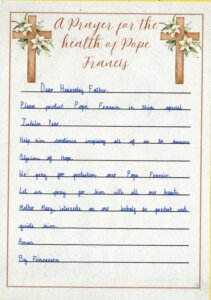 A Prayer for the
health of Pope
Francis
Dear Heavenly Father,
Please protect Pope Francis in this special
Jubilee Year.
Help him continue inspiring all of us to become
Pilgrims of Hope.
We pray for protection over Pope Francis.
Let us pray for him with all our hearts.
Mother Mary, intercede on our behalf to protect and
guide him.
Amen
By Francesca